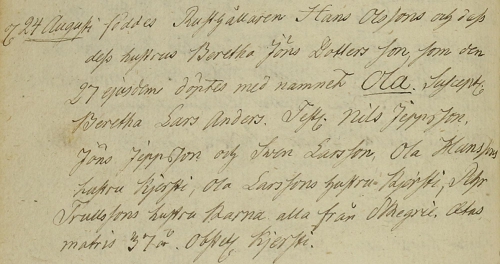 24 Augusti föddes Rusthållaren Hans Olssons och dess
dess hustrus Beretha Jöns Dotters son, som den
27 ejusdem döptes med namnet Ola. Suscept.
Beretha Lars Anders. Test. Nils Jeppsson,
Jöns Jeppsson och Swen Larsson, Ola Hanssons
hustru Kjersti, Ola Larssons hustru Kjersti, Pehr
Trulssons hustru Karna alla från Skegrie. Ætas
matris 37 år. Obstetr. Kjersti.